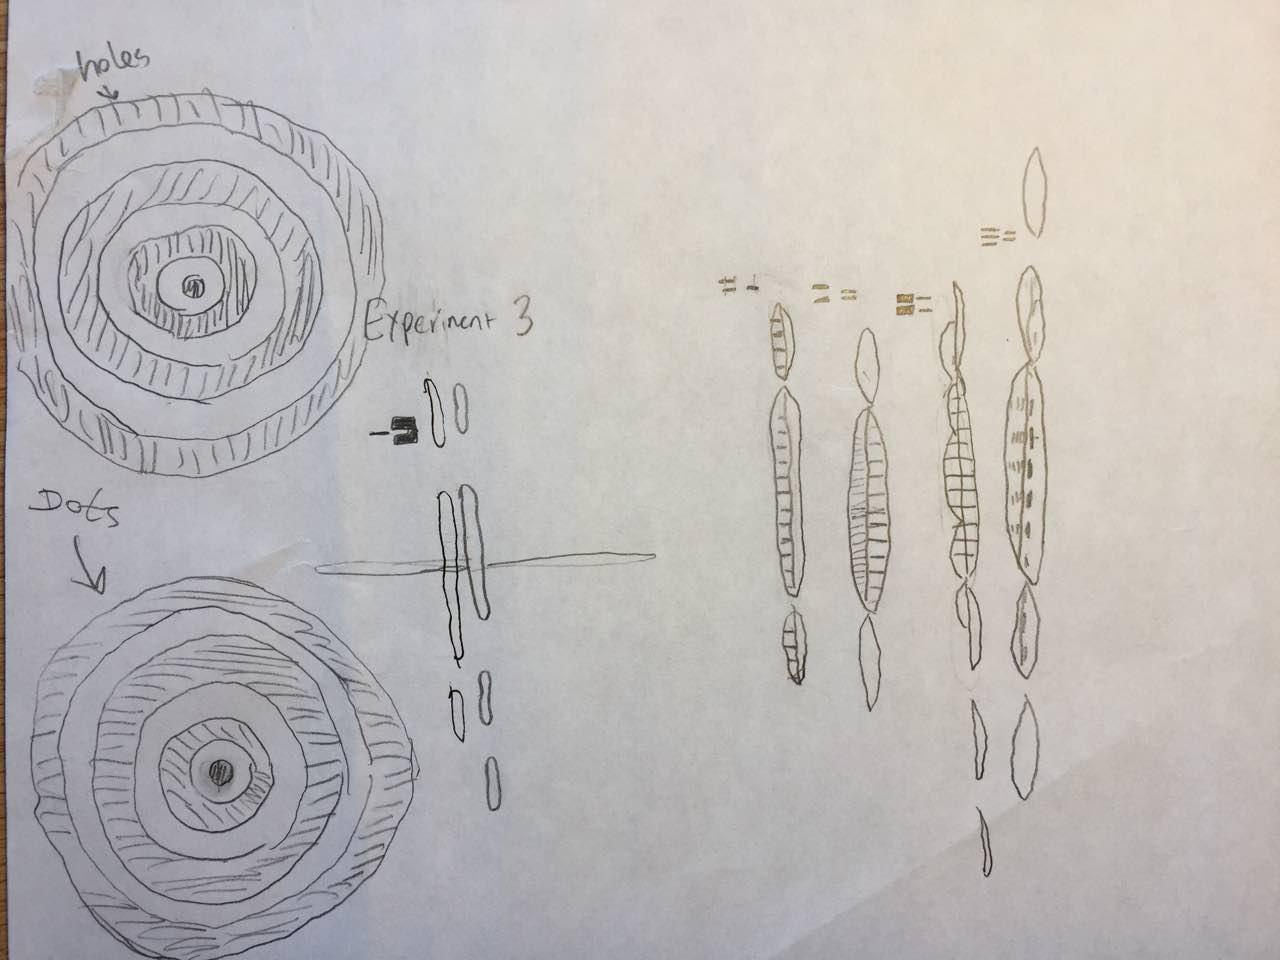 holes
Experiment 3
Dots